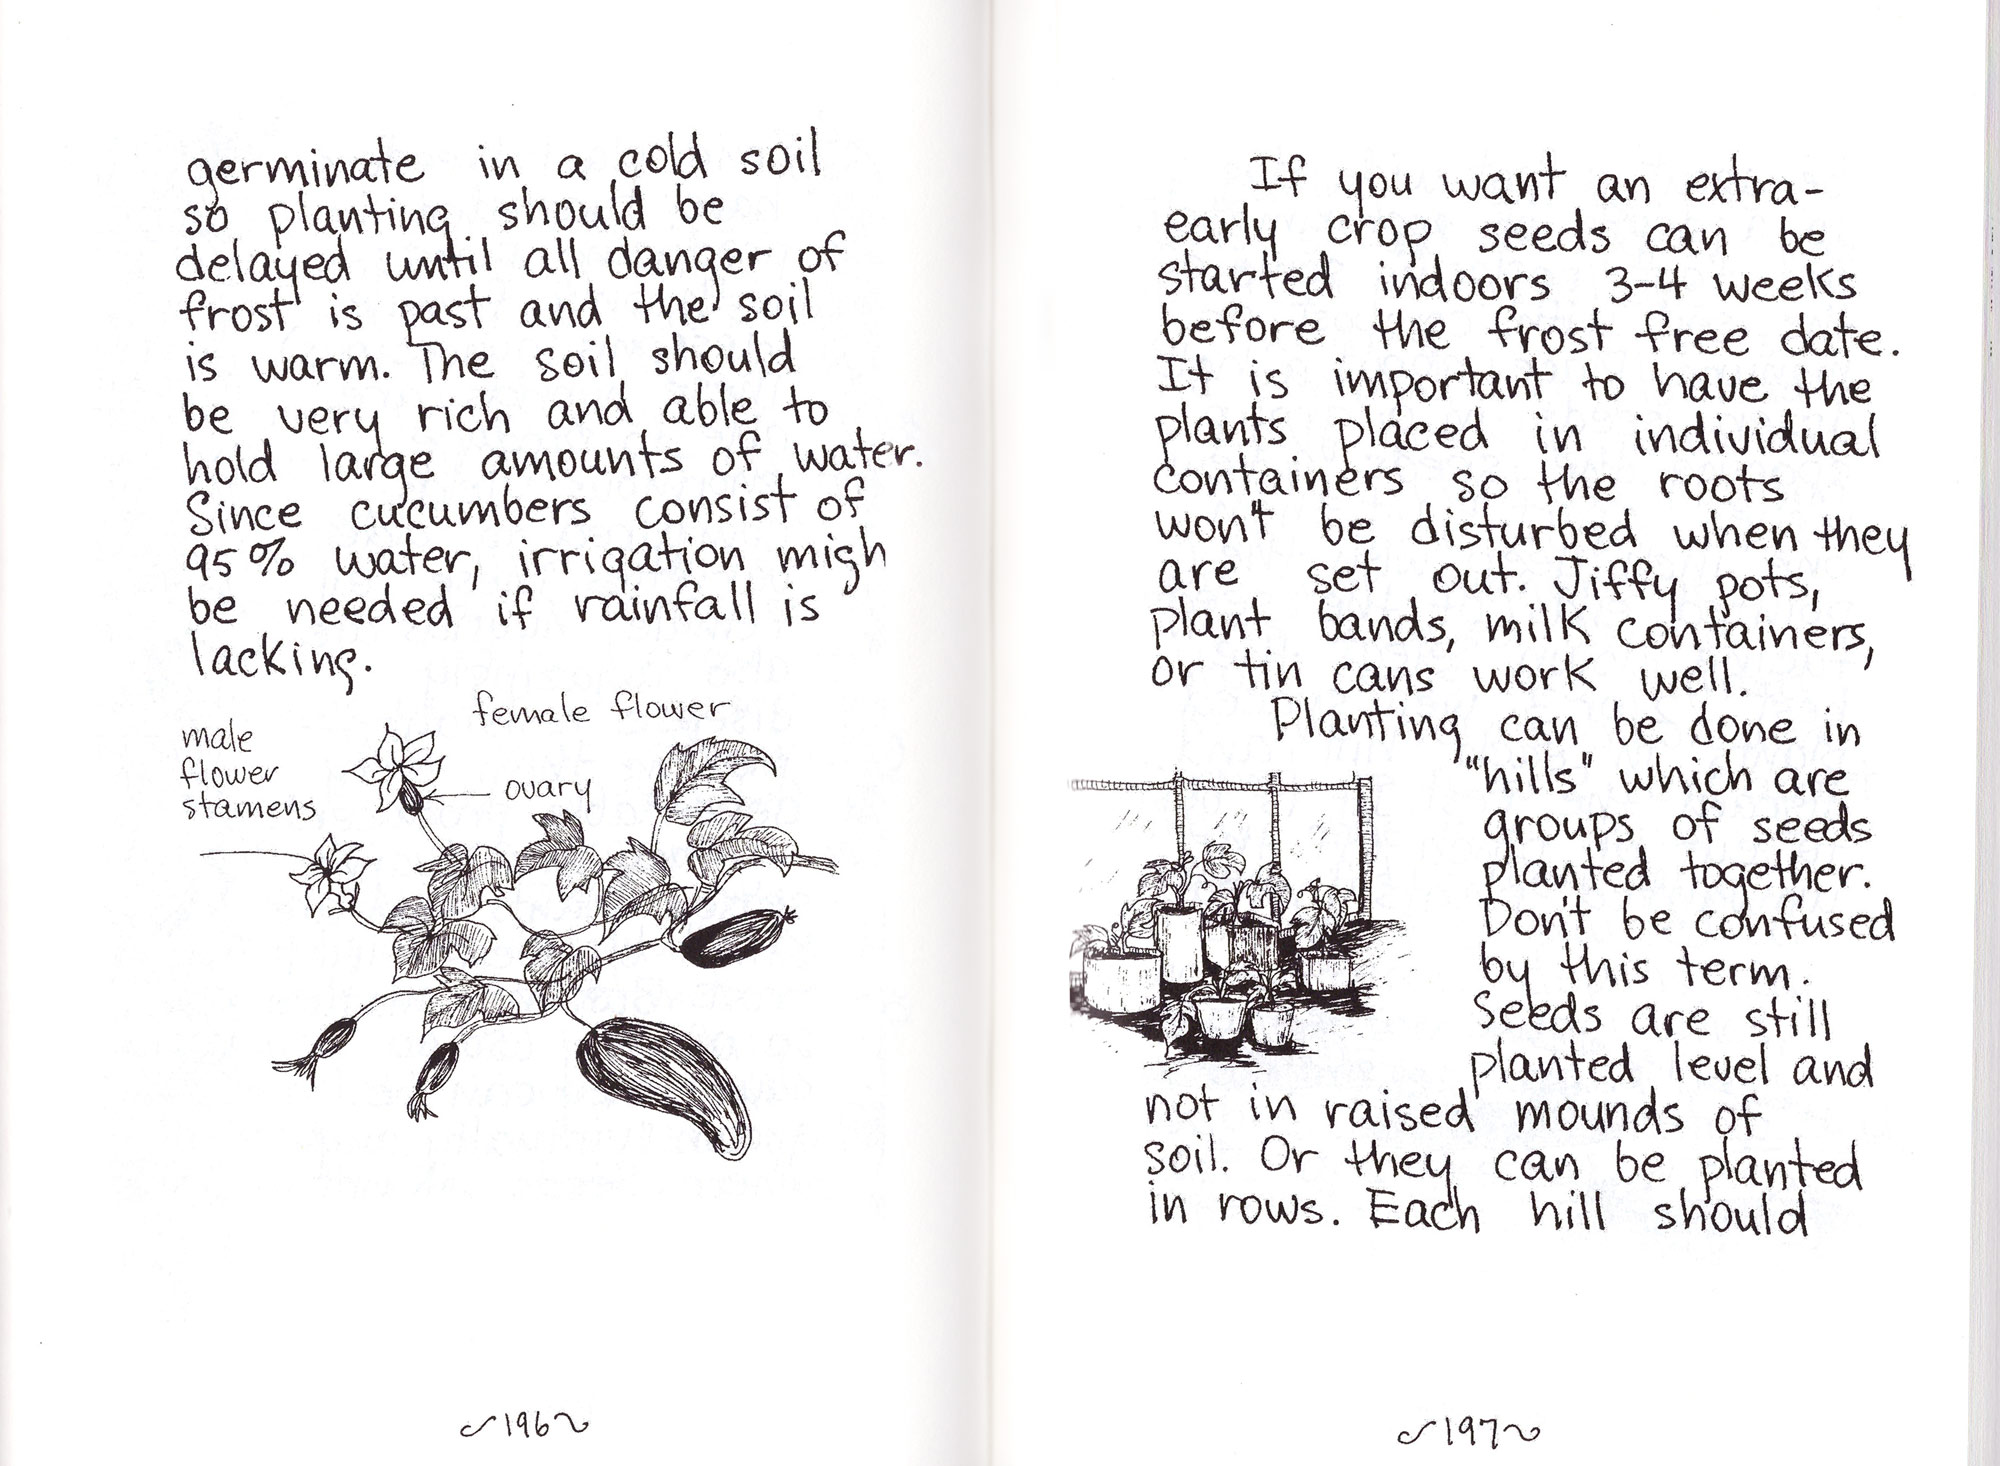 germinate in a cold soil
so planting should be
delayed until all danger of
frost is past and the soil
is warm. The soil should
be very rich and able to
hold large amounts of water.
Since cucumbers consist of
95% water, irrigation migh
be needed if rainfall is
lacking.
female flower
male
flower
stamens
ovary
~196~
If you want an extra-
early crop seeds can be
started indoors 3-4 weeks
before the frost free date.
It is important to have the
plants placed in individual
containers so the roots
won't be disturbed when they
are set out. Jiffy pots,
plant bands, milk containers,
or tin cans work well.
Planting can be done in
"hills" which are
groups of seeds
planted together.
Don't be confused
by this term.
Seeds are still
planted level and
not in raised mounds of
soil. Or they can be planted
in rows. Each hill should
~197~